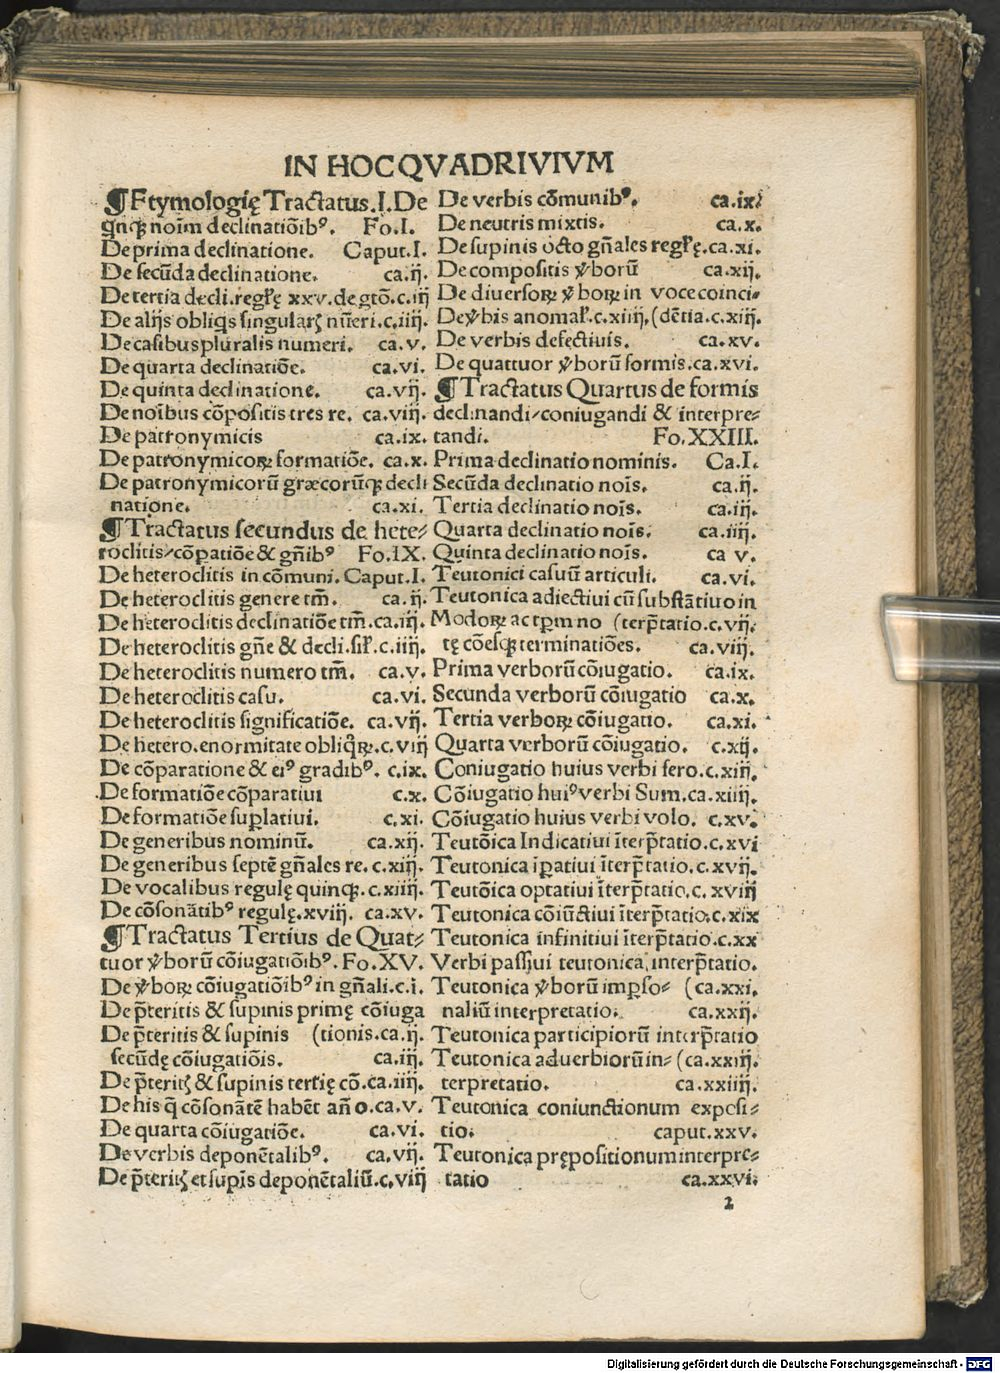 IN HOC QVADRIVIVM
¶ Etymologię Tractatus.I.De
qnqꝫ noim declinatiōibꝰ. Fo.I.
De prima declinatione. Caput.I.
De secūda declinatione. ca.ij.
De tertia decli.regłę xxv.de gtō.c.iij
De alijs obliq̄s singularꝭ nūeri.c.iiij.
De casibus pluralis numeri. ca.v.
De quarta declinatiōe. ca.vi.
De quinta declinatione. ca.vij.
De noībus cōpositis tres re. ca.viij.
De patronymicis ca.ix.
De patronymicoꝝ formatiōe. ca.x.
De patronymicorū græcorūqꝫ decli
natione. ca.xi.
¶ Tractatus secundus de hete⸗
roclitis/cōpatiōe & gn̄ibꝰ Fo.IX.
De heteroclitis in cōmuni. Caput.I.
De heteroclitis genere tm̄. ca.ij.
De heteroclitis declinatiōe tm̄.ca.iij.
De heteroclitis gn̄e & decli.sił.c.iiij.
De heteroclitis numero tm̄. ca.v.
De heteroclitis casu. ca.vi.
De heteroclitis significatiōe. ca.vij.
De hetero.enormitate obliq̄ꝝ.c.viij
De cōparatione & eiꝰ gradibꝰ. c.ix.
De formatiōe cōparatiui c.x.
De formatiōe suplatiui. c.xi.
De generibus nominū. ca.xij.
De generibus septē gn̄ales re. c.xiij.
De vocalibus regulę quinqꝫ.c.xiiij.
De cōsonātibꝰ regulę.xviij. ca.xv.
¶ Tractatus Tertius de Quat⸗
tuor ꝟborū cōiugatiōibꝰ. Fo.XV.
De ꝟboꝝ cōiugatiōibꝰ in gn̄ali.c.i.
De p̄teritis & supinis primę cōiuga
De p̄teritis & supinis (tionis.ca.ij.
secūdę cōiugatiōis. ca.iij.
De p̄teritꝭ & supinis tertię cō.ca.iiij.
De his q̄ cōsonātē habēt an̄ o.ca.v.
De quarta cōiugatiōe. ca.vi.
De verbis deponētalibꝰ. ca.vij.
De p̄teritꝭ et supīs deponētaliū.c.viij
De verbis cōmunibꝰ. ca.ix.
De neutris mixtis. ca.x.
De supinis octo gn̄ales regłę.ca.xi.
De compositis ꝟborū ca.xij.
De diuersoꝝ ꝟboꝝ in voce coinci⸗
De ꝟbis anomał.c.xiiij.(dētia.c.xiij.
De verbis defectiuis. ca.xv.
De quattuor ꝟborū formis.ca.xvi.
¶ Tractatus Quartus de formis
declinandi/coniugandi & interpre⸗
tandi. Fo.XXIII.
Prima declinatio nominis. Ca.I.
Secūda declinatio noīs. ca.ij.
Tertia declinatio noīs. ca.iij.
Quarta declinatio noīs. ca.iiij.
Quinta declinatio noīs. ca v.
Teutonici casuū articuli. ca.vi.
Teutonica adiectiui cū substātiuo in
Modoꝝ ac tꝑm no (terp̄tatio.c.vij.
tę cōesqꝫ terminatiōes. ca.viij.
Prima verborū cōiugatio. ca.ix.
Secunda verborū cōiugatio ca.x.
Tertia verboꝝ cōiugatio. ca.xi.
Quarta verborū cōiugatio. c.xij.
Coniugatio huius verbi fero.c.xiij.
Cōiugatio huiꝰ verbi Sum.ca.xiiij.
Cōiugatio huius verbi volo. c.xv.
Teutōica Indicatiui īterp̄tatio.c.xvi
Teutonica īpatiui īterp̄tatio.c.xvij.
Teutōica optatiui īterp̄tatio.c.xviij
Teutonica cōiūctiui īterp̄tatio.c.xix
Teutonica infinitiui īterp̄tatio.c.xx
Verbi passiui teutonica interp̄tatio.
Teutonica ꝟborū imꝑso⸗ (ca.xxi.
naliū interpretatio. ca.xxij.
Teutonica participiorū interp̄tatio
Teutonica aduerbiorū in⸗(ca.xxiij.
terpretatio. ca.xxiiij.
Teutonica coniunctionum exposi⸗
tio. caput.xxv.
Teutonica prępositionum interpre⸗
tatio ca.xxvi.
2
Digitalisierung gefördert durch die Deutsche Forschungsgemeinschaft - DFG